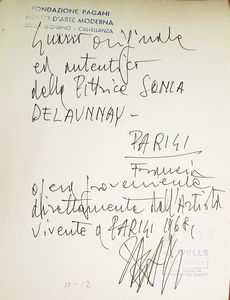 FONDAZIONE PAGANI
MUSEO D'ARTE MODERNA
LEGNANO - CASTELLANZA
originale
ed autentico
della Pittrice SONIA
DELAUNNAY -
PARIGI
Francia
opera proveniente
direttamente dall'Artista
vivente a PARIGI 1968,
74
WELLS
10-12